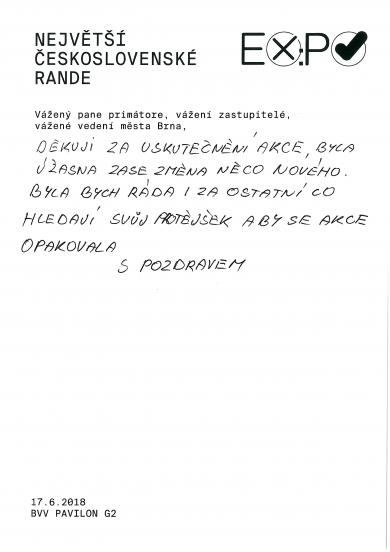 NEJVĚTŠÍ
ČESKOSLOVENSKÉ
RANDE
EX:PO
Vážený pane primátore, vážení zastupitelé,
vážené vedení města Brna,
DĚKUJI ZA USKUTEČNĚNÍ AKCE, BYLA
ÚŽASNA ZASE ZMĚNA NĚCO NOVÉHO.
BYLA BYCH RÁDA I ZA OSTATNÍ CO
HLEDAJÍ SVŮJ PROTĚJŠEK ABY SE AKCE
OPAKOVALA
S POZDRAVEM
17.6.2018
BVV PAVILON G2